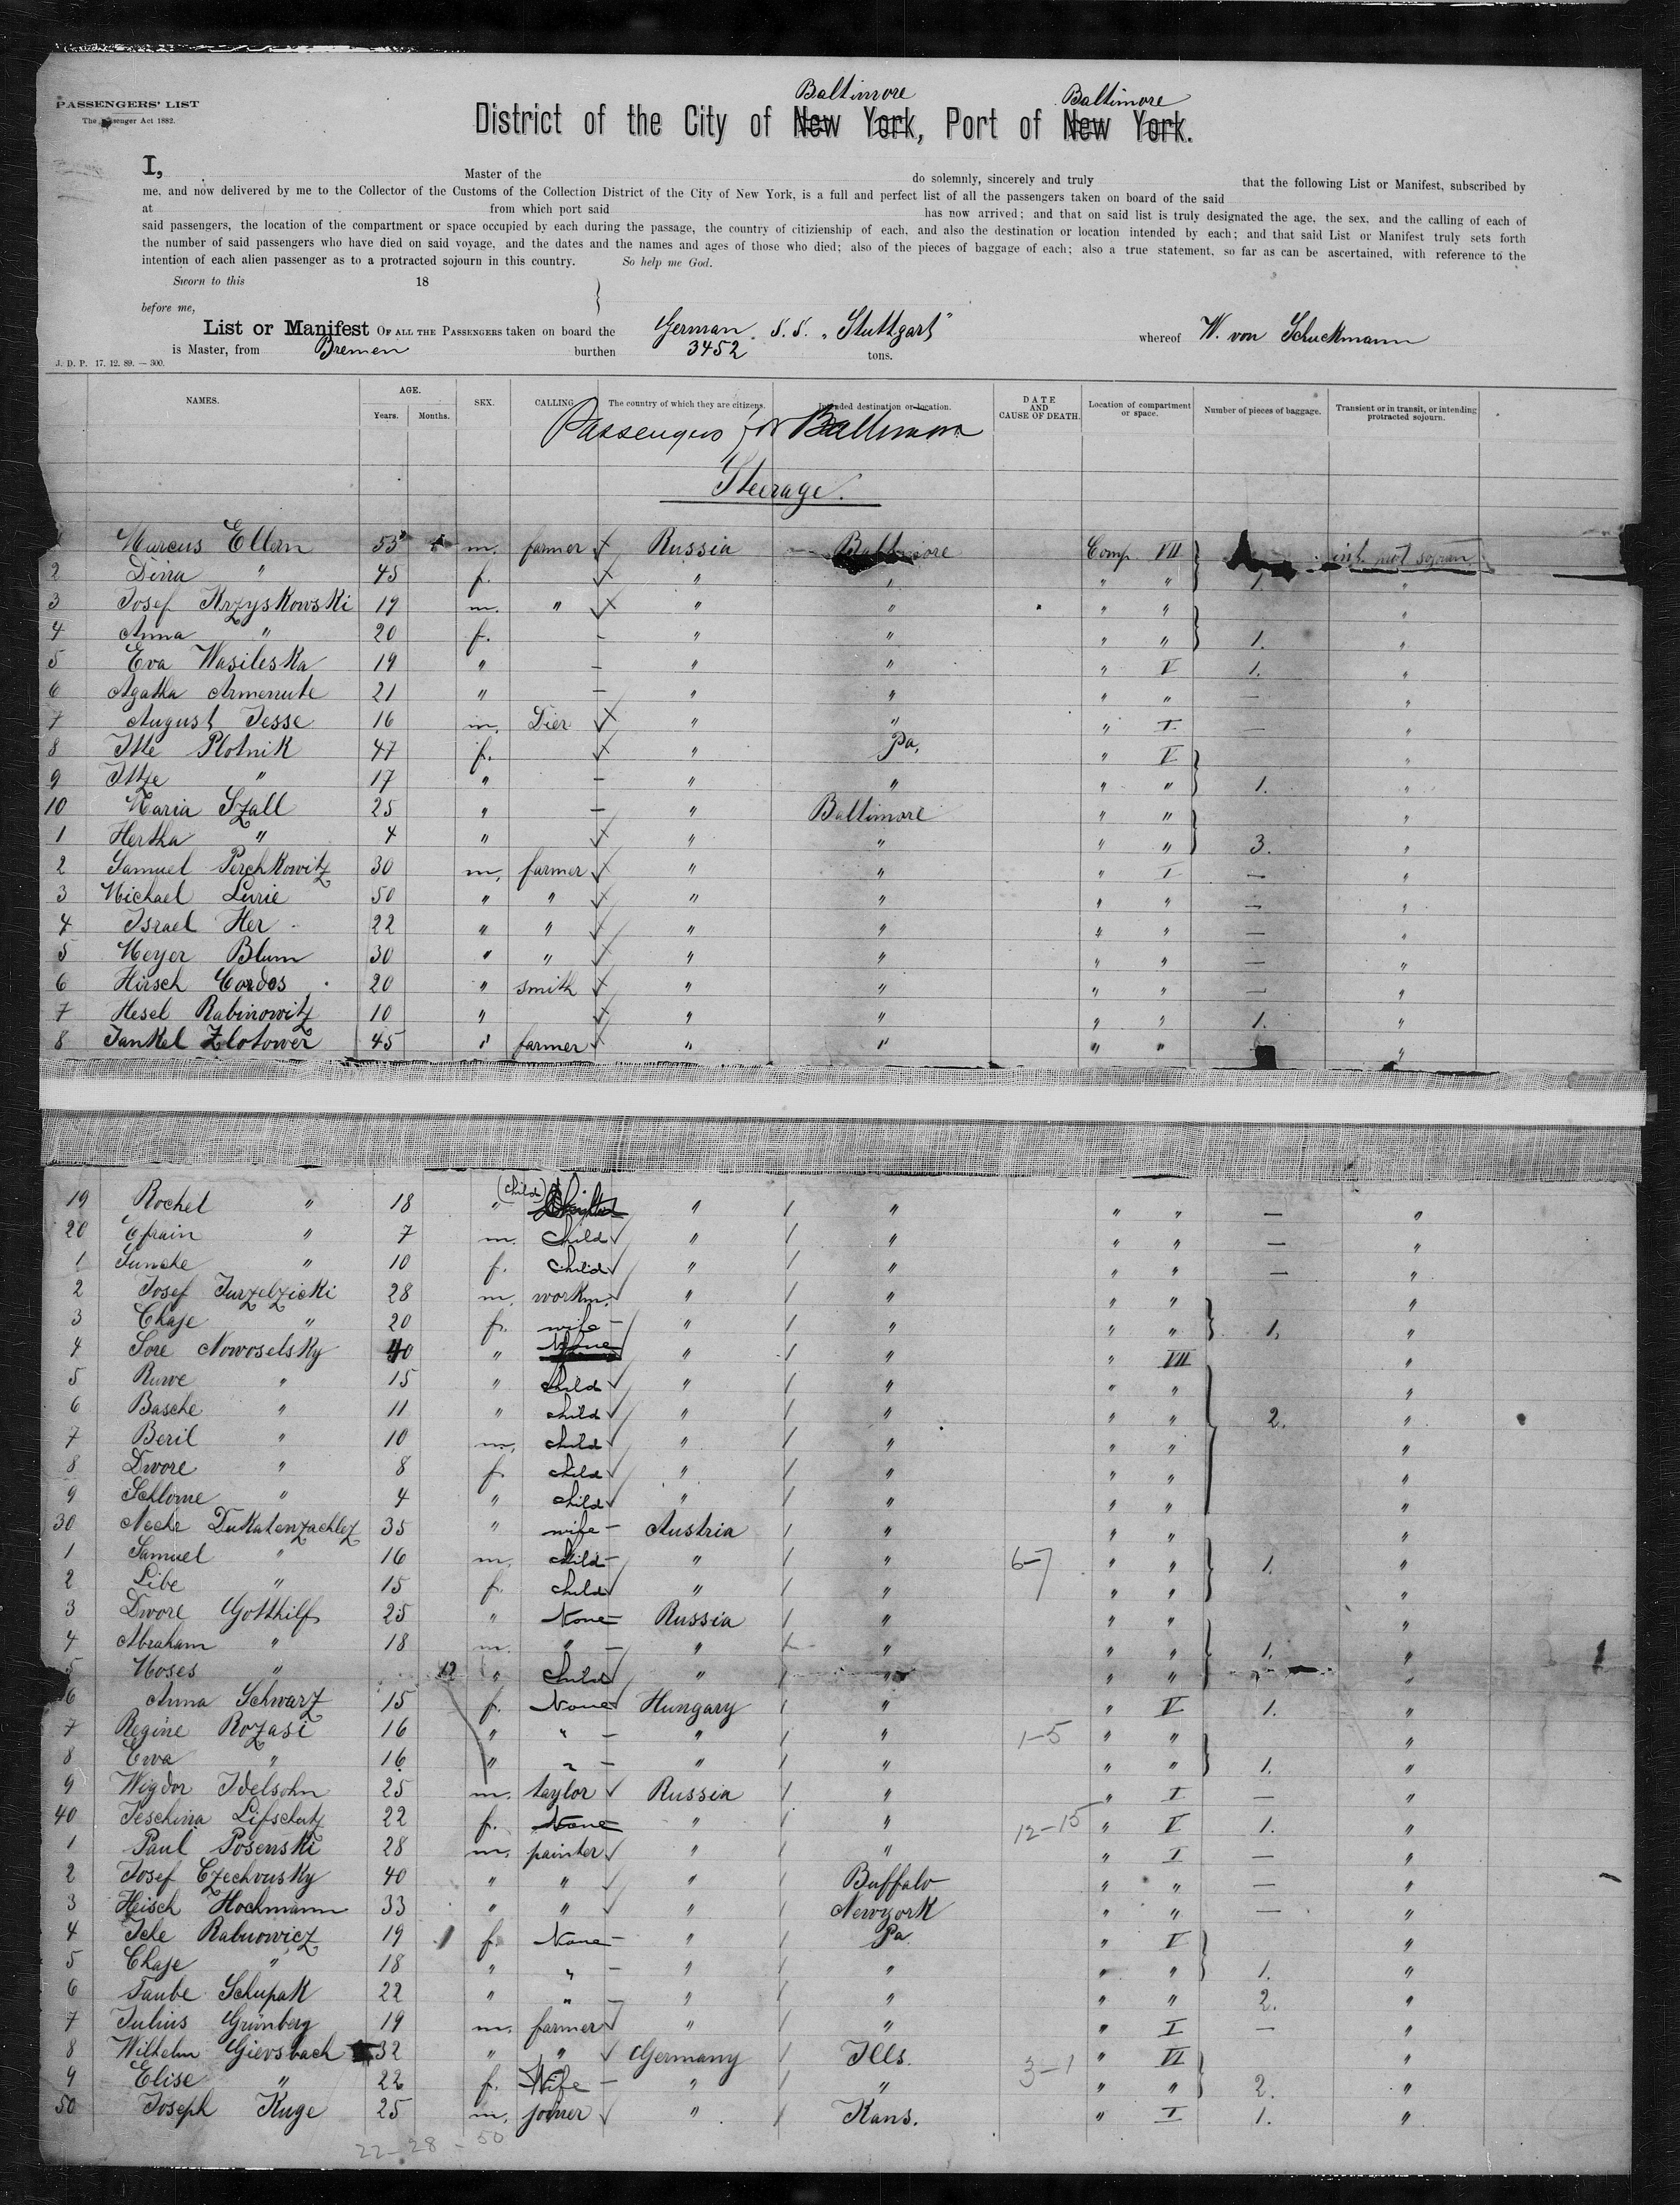 PASSENGERS' LIST
The Passenger Act 1882.
Baltimore Baltimore
District of the City of New York, Port of New York.
I, Master of the do solemnly, sincerely and truly that the following List or Manifest, subscribed by
me, and now delivered by me to the Collector of the Customs of the Collection District of the City of New York, is a full and perfect list of all the passengers taken on board of the said
at from which port said has now arrived; and that on said list is truly designated the age, the sex, and the calling of each of
said passengers, the location of the compartment or space occupied by each during the passage, the country of citizienship of each, and also the destination or location intended by each; and that said List or Manifest truly sets forth
the number of said passengers who have died on said voyage, and the dates and the names and ages of those who died; also of the pieces of baggage of each; also a true statement, so far as can be ascertained, with reference to the
intention of each alien passenger as to a protracted sojourn in this country. So help me God.
Sworn to this 18
before me,
List or Manifest OF ALL THE PASSENGERS taken on board the German S.S. "Stuttgart" whereof W. von Schuckmann
is Master, from Bremen burthen 3452 tons.
J. D. P. 17. 12. 89. — 300.
NAMES. AGE. Years. Months. SEX. CALLING. The country of which they are citizens. Intended destination or location. DATE AND CAUSE OF DEATH. Location of compartment or space. Number of pieces of baggage. Transient or in transit, or intending protracted sojourn.
Passengers for Baltimore
Steerage.
Marcus Ellern 53 m. farmer Russia Baltimore Comp. VII
2 Dina " 45 f. " " " " 1. "
3 Josef Krzyskowski 19 m. " " " " " "
4 Anna " 20 f. - " " " " 1. "
5 Eva Wasileska 19 " - " " " V 1. "
6 Agatha Armenute 21 " - " " " " - "
7 August Jesse 16 m. Dier " " " I - "
8 Itte Plotnik 47 f. " Pa. " V "
9 Itze " 17 " - " " " " 1. "
10 Maria Szall 25 " - " Baltimore " " "
1 Hertha " 4 " " " " " 3. "
2 Samuel Perchkowitz 30 m. farmer " " " I - "
3 Michael Lurie 50 " " " " " " - "
4 Israel Her 22 " " " " " " - "
5 Meyer Blum 30 " " " " " " - "
6 Hirsch Cordos 20 " smith " " " " - "
7 Hesel Rabinowitz 10 " " " " " 1. "
8 Jankel Zlotower 45 " farmer " " " " "
19 Rochel " 18 " (child) " " " " - "
20 Efraim " 7 m. child " " " " - "
1 " 10 f. child " " " " - "
2 Josef Jurzelzicki 28 m. workm. " " " " "
3 Chaje " 20 f. wife - " " " " 1. "
4 Sore Nowoselsky 40 " None " " " VII "
5 Ruwe " 15 " child " " " " "
6 Basche " 11 " child " " " " 2. "
7 Beril " 10 m. child " " " " "
8 Dwore " 8 f. child " " " " "
9 Schlome " 4 " child " " " " "
30 Neche Dukatenzachlez 35 " wife - Austria " " " "
1 Samuel " 16 m. child - " " 6-7 " " 1. "
2 Libe " 15 f. child " " " " "
3 Dwore Gotthilf 25 " None - Russia " " " "
4 Abraham " 18 m. " - " " " " 1. "
5 Moses " 12 " child " " " " "
6 Anna Schwarz 15 f. None Hungary " " V 1. "
7 Regine Rozasi 16 " " - " " 1-5 " " "
8 Ewa " 16 " " - " " " " 1. "
9 Wigdor Idelsohn 25 m. taylor Russia " " I - "
40 Jeschina Lifschutz 22 f. None " " 12-15 " V 1. "
1 Paul Posenski 28 m. painter " " " I - "
2 Josef Czechowsky 40 " " " Buffalo " " - "
3 Heisch Hochmann 33 " " " Newyork " " - "
4 Icle Rabinowicz 19 f. None - " Pa. " V "
5 Chaje " 18 " " - " " " " 1. "
6 Taube Schupak 22 " " - " " " " 2. "
7 Julius Grünberg 19 m. farmer " " " I - "
8 Wilhelm Giersbach 32 " " Germany Ills. " VI "
9 Elise " 22 f. Wife - " " 3-1 " " 2. "
50 Joseph Kuge 25 m. joiner " Kans. " I 1. "
22-28-50